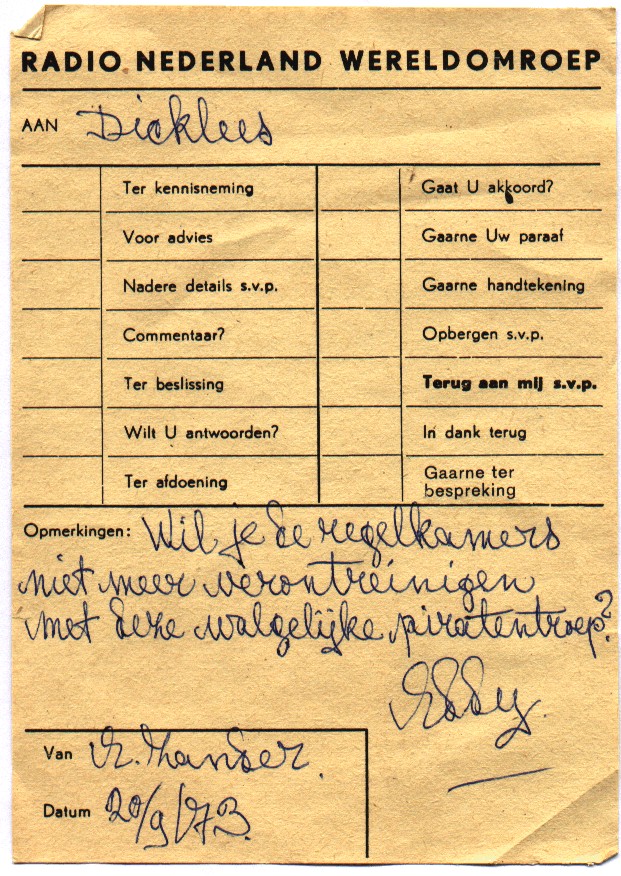 RADIO NEDERLAND WERELDOMROEP
AAN Dicklees
Ter kennisneming
Gaat U akkoord?
Voor advies
Gaarne Uw paraaf
Nadere details s.v.p.
Gaarne handtekening
Commentaar?
Opbergen s.v.p.
Ter beslissing
Terug aan mij s.v.p.
Wilt U antwoorden?
In dank terug
Ter afdoening
Gaarne ter
bespreking
Opmerkingen: Wil je de regelkamers
niet meer verontreinigen
met deze walgelijke piratentroep?
Eddy.
Van E.
Datum 20/9/73.